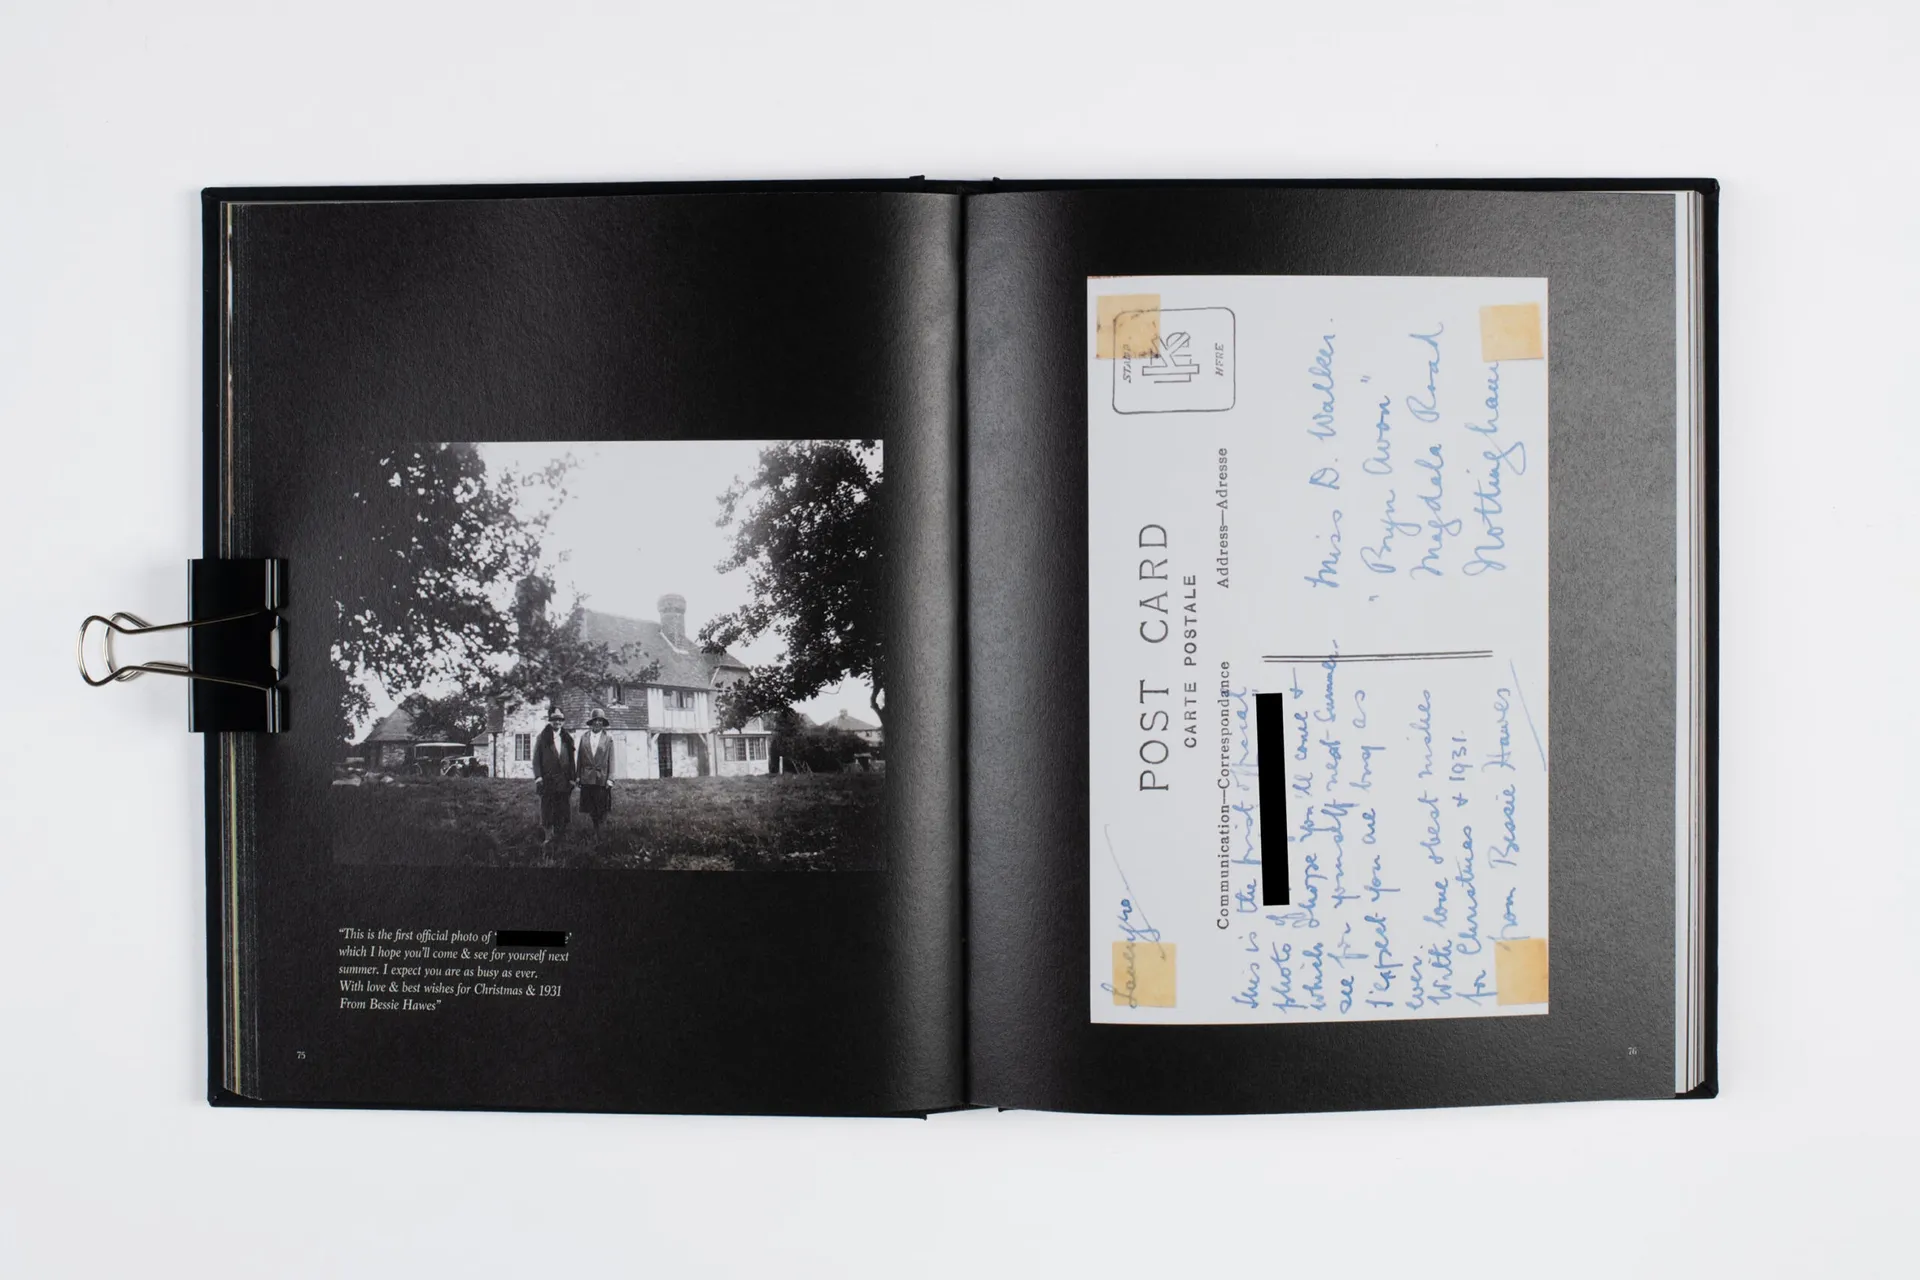 "This is the first official photo of '
which I hope you'll come & see for yourself next
summer. I expect you are as busy as ever.
With love & best wishes for Christmas & 1931
From Bessie Hawes"
75
POST CARD
CARTE POSTALE
STAMP
HERE
Communication—Correspondence
Address—Adresse
This is the first official
photo of
which I hope you'll come &
see for yourself next summer.
I expect you are busy as
ever.
With love & best wishes
for Christmas & 1931.
from Bessie Hawes
Miss D. Walker.
"Bryn Avon"
Magdala Road
Nottingham
76